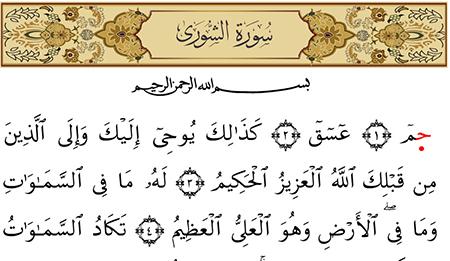 سُورَةُ الشُّورَى
بسم الله الرحمن الرحيم
جمٓ ﴿١﴾ عٓسٓقٓ ﴿٢﴾ كَذَٰلِكَ يُوحِىٓ إِلَيْكَ وَإِلَى ٱلَّذِينَ
مِن قَبْلِكَ ٱللَّهُ ٱلْعَزِيزُ ٱلْحَكِيمُ ﴿٣﴾ لَهُۥ مَا فِى ٱلسَّمَٰوَٰتِ
وَمَا فِى ٱلْأَرْضِ ۖ وَهُوَ ٱلْعَلِىُّ ٱلْعَظِيمُ ﴿٤﴾ تَكَادُ ٱلسَّمَٰوَٰتُ